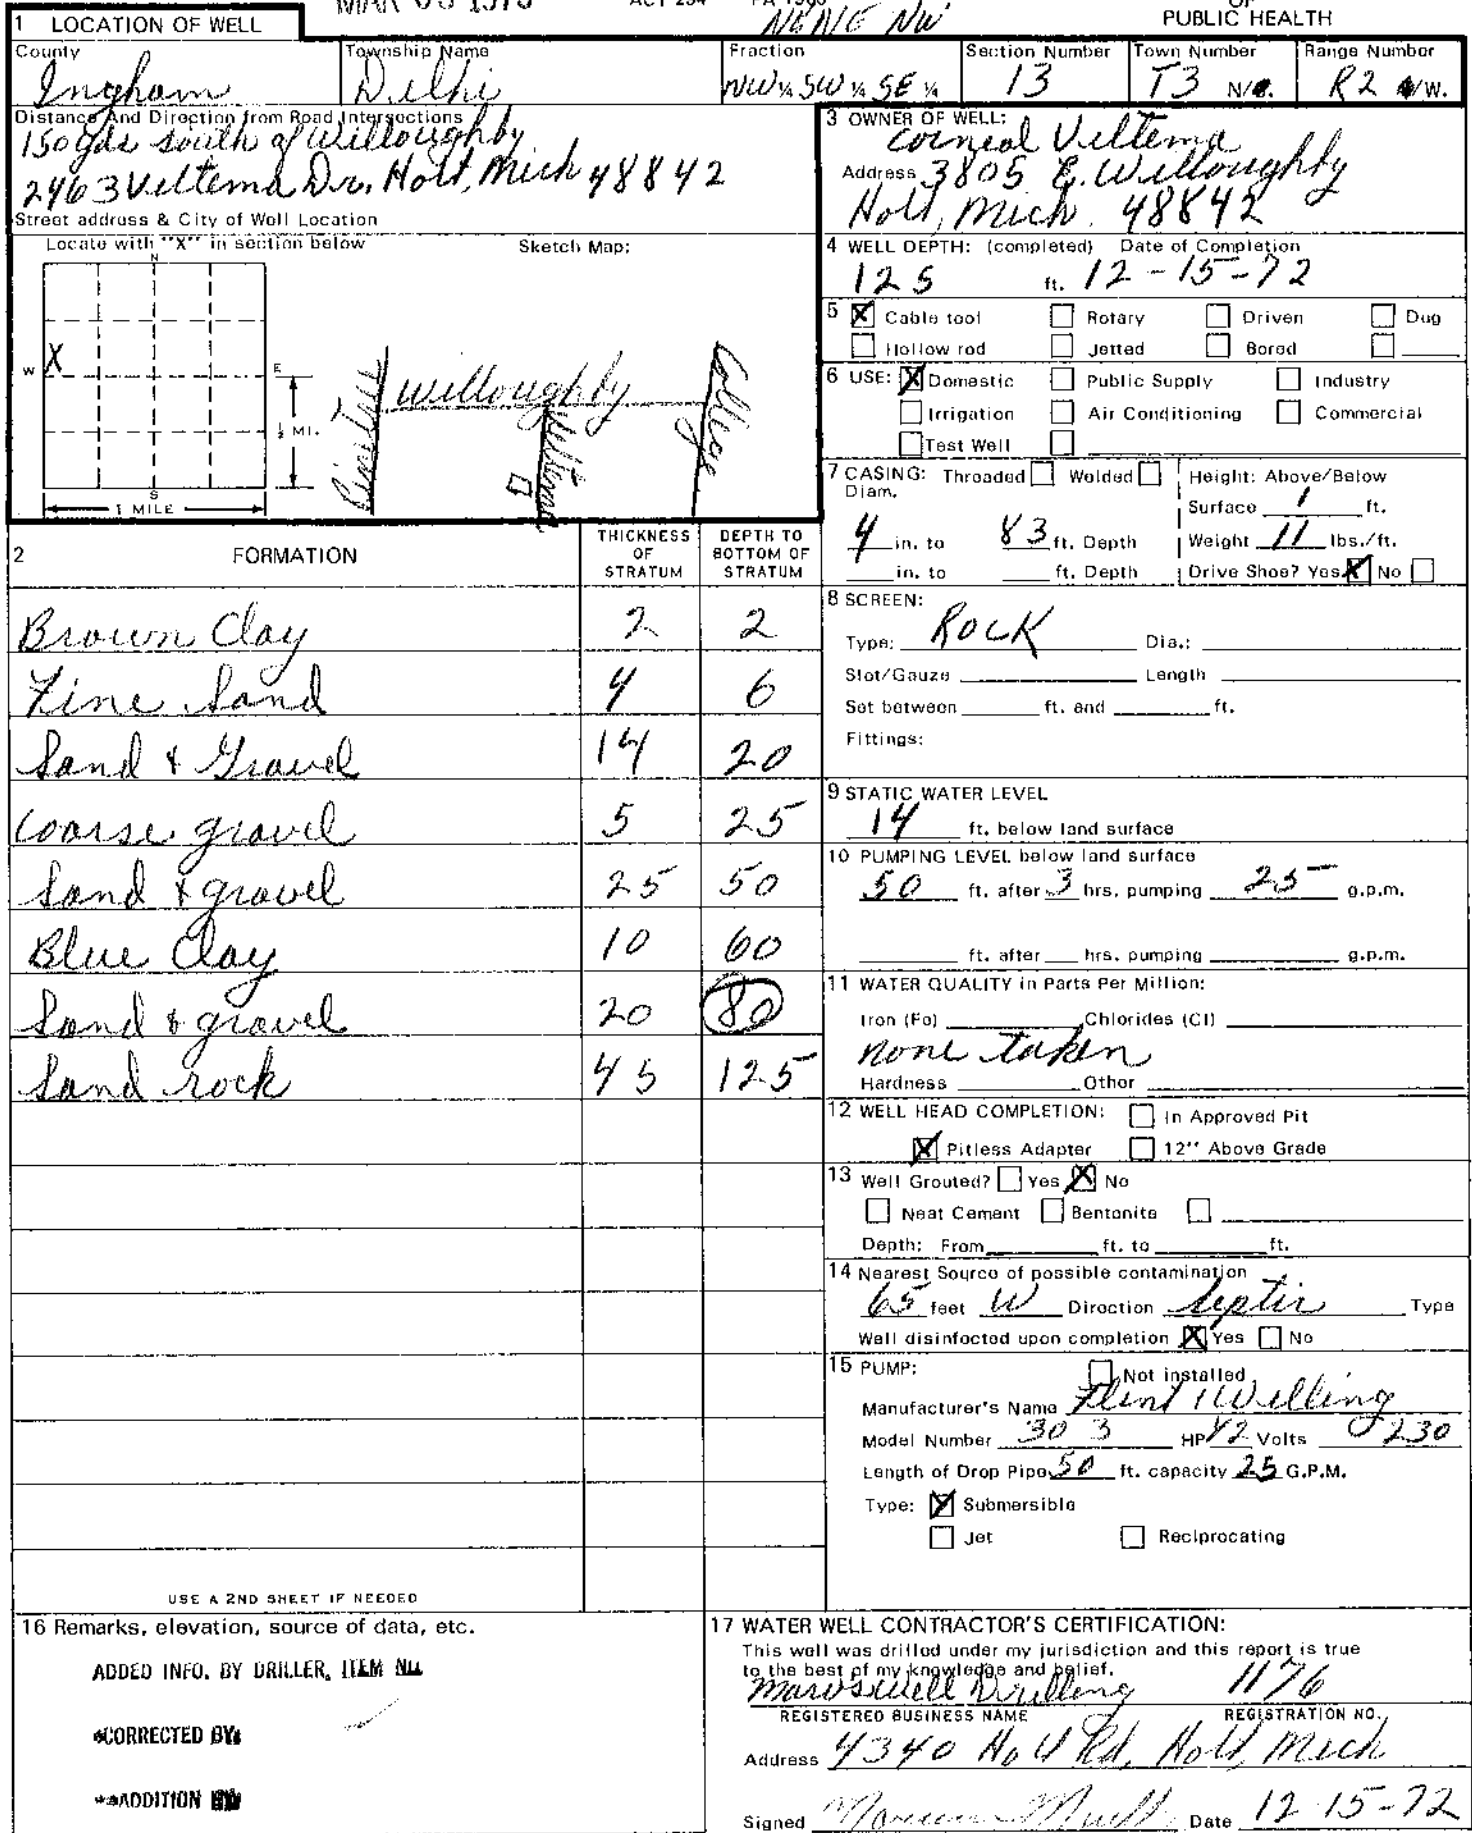 1 LOCATION OF WELL
ACT 294 PA 1965
OF
PUBLIC HEALTH
NE NE NW
County
Township Name
Fraction
Section Number
Town Number
Range Number
Ingham
Delhi
NW ¼ SW ¼ SE ¼
13
T3 N/S.
R2 E/W.
Distance And Direction from Road Intersections
150 yds south of Willoughby
2463 Veltema Dr. Holt, Mich 48842
Street address & City of Well Location
Locate with "X" in section below
Sketch Map:
N
X
W
E
½ MI.
S
1 MILE
Pine Tree
Willoughby
Veltema
College
3 OWNER OF WELL:
Corneal Veltema
Address 3805 E. Willoughby
Holt, Mich. 48842
4 WELL DEPTH: (completed) Date of Completion
125 ft. 12-15-72
5 X Cable tool Rotary Driven Dug
Hollow rod Jetted Bored
6 USE: X Domestic Public Supply Industry
Irrigation Air Conditioning Commercial
Test Well
7 CASING: Threaded Welded Height: Above/Below
Diam.
Surface 1 ft.
4 in. to 83 ft. Depth Weight 11 lbs./ft.
in. to ft. Depth Drive Shoe? Yes X No
2 FORMATION
THICKNESS OF STRATUM
DEPTH TO BOTTOM OF STRATUM
Brown Clay 2 2
Fine Sand 4 6
Sand & Gravel 14 20
Coarse gravel 5 25
Sand & gravel 25 50
Blue Clay 10 60
Sand & gravel 20 80
Sand rock 45 125
USE A 2ND SHEET IF NEEDED
8 SCREEN:
Type: ROCK Dia.:
Slot/Gauze Length
Set between ft. and ft.
Fittings:
9 STATIC WATER LEVEL
14 ft. below land surface
10 PUMPING LEVEL below land surface
50 ft. after 3 hrs. pumping 25 g.p.m.
ft. after hrs. pumping g.p.m.
11 WATER QUALITY in Parts Per Million:
Iron (Fe) Chlorides (Cl)
none taken
Hardness Other
12 WELL HEAD COMPLETION: In Approved Pit
X Pitless Adapter 12" Above Grade
13 Well Grouted? Yes X No
Neat Cement Bentonite
Depth: From ft. to ft.
14 Nearest Source of possible contamination
65 feet W Direction septic Type
Well disinfected upon completion X Yes No
15 PUMP: Not installed
Manufacturer's Name Flint & Welling
Model Number 303 HP 1/2 Volts 230
Length of Drop Pipe 50 ft. capacity 25 G.P.M.
Type: X Submersible
Jet Reciprocating
16 Remarks, elevation, source of data, etc.
ADDED INFO. BY DRILLER, ITEM NO.
*CORRECTED BY:
**ADDITION BY
17 WATER WELL CONTRACTOR'S CERTIFICATION:
This well was drilled under my jurisdiction and this report is true
to the best of my knowledge and belief.
Marv's Well Drilling 1176
REGISTERED BUSINESS NAME REGISTRATION NO.
Address 4340 Holt Rd, Holt Mich
Signed Date 12-15-72